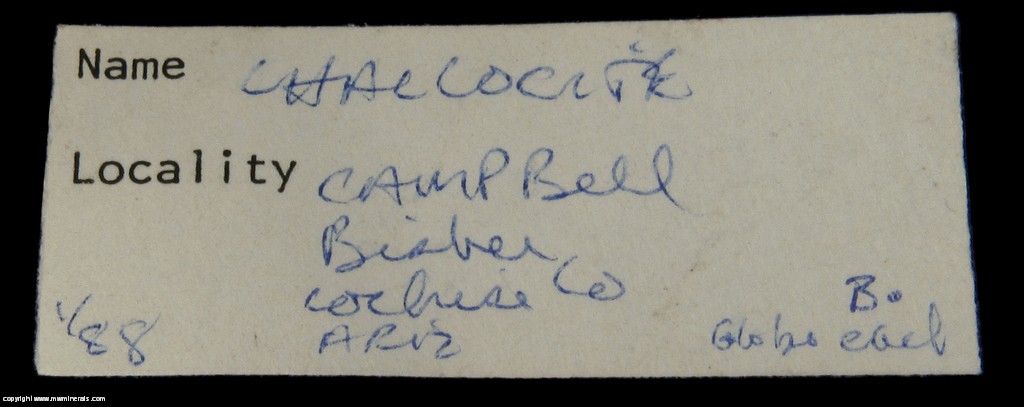 Name CHALCOCITE
Locality CAMPBell
Bisbee
Cochise Co
ARIZ
1/88
B.
Globe
copyright www.mwminerals.com